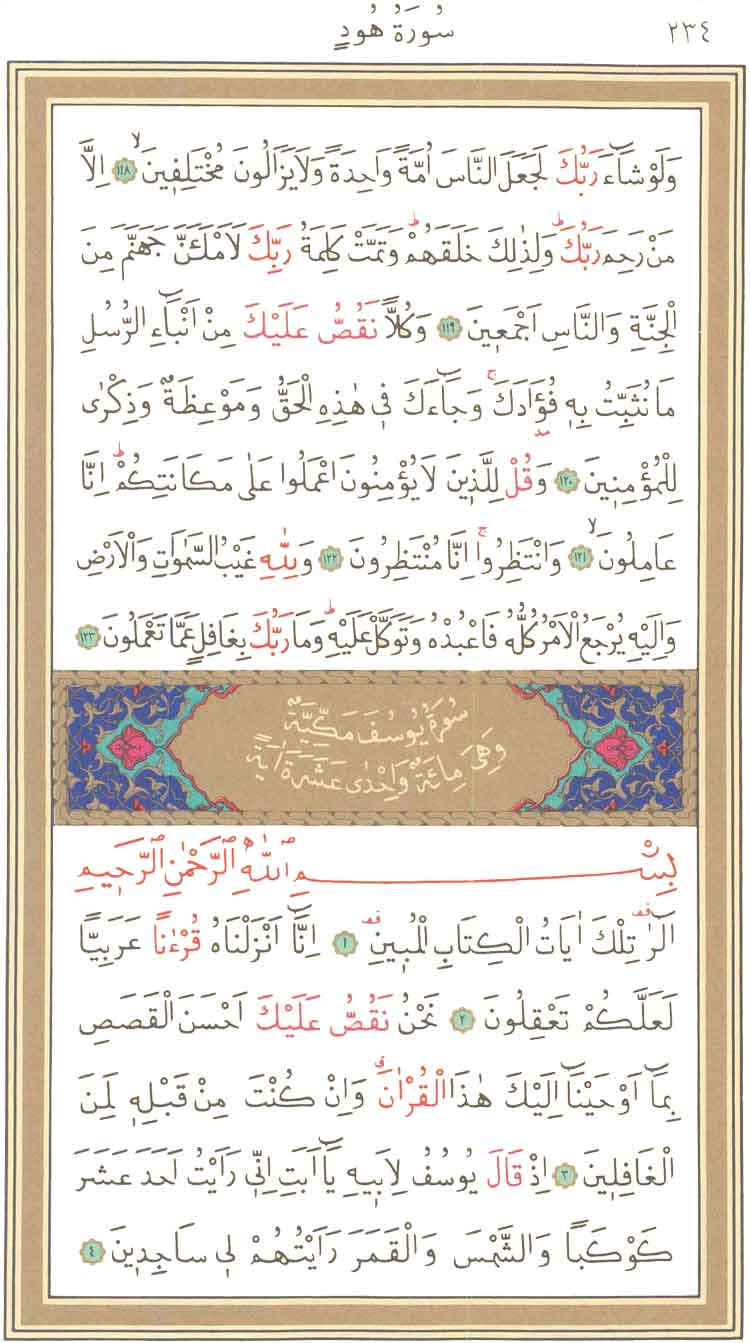 سُورَةُ هُودٍ ٢٣٤
وَلَوْ شَٓاءَ رَبُّكَ لَجَعَلَ النَّاسَ اُمَّةً وَاحِدَةً وَلَا يَزَالُونَ مُخْتَلِف۪ينَۙ ﴿١١٨﴾ اِلَّا
مَنْ رَحِمَ رَبُّكَۜ وَلِذٰلِكَ خَلَقَهُمْۜ وَتَمَّتْ كَلِمَةُ رَبِّكَ لَاَمْلَـَٔنَّ جَهَنَّمَ مِنَ
الْجِنَّةِ وَالنَّاسِ اَجْمَع۪ينَ ﴿١١٩﴾ وَكُلًّا نَقُصُّ عَلَيْكَ مِنْ اَنْبَٓاءِ الرُّسُلِ
مَا نُثَبِّتُ بِه۪ فُؤٰادَكَۚ وَجَٓاءَكَ ف۪ي هٰذِهِ الْحَقُّ وَمَوْعِظَةٌ وَذِكْرٰى
لِلْمُؤْمِن۪ينَ ﴿١٢٠﴾ وَقُلْ لِلَّذ۪ينَ لَا يُؤْمِنُونَ اعْمَلُوا عَلٰى مَكَانَتِكُمْۜ اِنَّا
عَامِلُونَۙ ﴿١٢١﴾ وَانْتَظِرُواۚ اِنَّا مُنْتَظِرُونَ ﴿١٢٢﴾ وَلِلّٰهِ غَيْبُ السَّمٰوَاتِ وَالْاَرْضِ
وَاِلَيْهِ يُرْجَعُ الْاَمْرُ كُلُّهُ فَاعْبُدْهُ وَتَوَكَّلْ عَلَيْهِۜ وَمَا رَبُّكَ بِغَافِلٍ عَمَّا تَعْمَلُونَ ﴿١٢٣﴾
سُورَةُ يُوسُفَ مَكِّيَّةٌ
وَهِيَ مِائَةٌ وَاِحْدٰى عَشَرَةَ اٰيَةً
بِسْمِ اللّٰهِ الرَّحْمٰنِ الرَّح۪يمِ
الٓرٰ۠ تِلْكَ اٰيَاتُ الْكِتَابِ الْمُب۪ينِ۠ ﴿١﴾ اِنَّٓا اَنْزَلْنَاهُ قُرْءٰنًا عَرَبِيًّا
لَعَلَّكُمْ تَعْقِلُونَ ﴿٢﴾ نَحْنُ نَقُصُّ عَلَيْكَ اَحْسَنَ الْقَصَصِ
بِمَٓا اَوْحَيْنَٓا اِلَيْكَ هٰذَا الْقُرْاٰنَۗ وَاِنْ كُنْتَ مِنْ قَبْلِه۪ لَمِنَ
الْغَافِل۪ينَ ﴿٣﴾ اِذْ قَالَ يُوسُفُ لِاَب۪يهِ يَٓا اَبَتِ اِنّ۪ي رَاَيْتُ اَحَدَ عَشَرَ
كَوْكَبًا وَالشَّمْسَ وَالْقَمَرَ رَاَيْتُهُمْ ل۪ي سَاجِد۪ينَ ﴿٤﴾